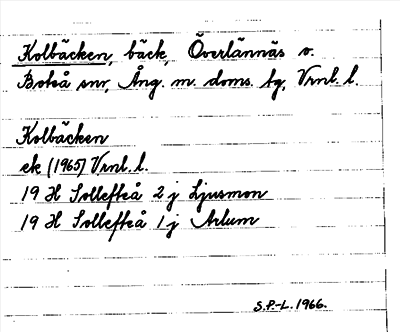 Kolbäcken, bäck, Överlännäs s.
Boteå snr, Ång. m. doms. fg, Vrnl. l.
Kolbäcken
ek (1965) Vrnl. l.
19 H Sollefteå 2 j Ljusmon
19 H Sollefteå 1 j Arlum
S.P.-L. 1966.